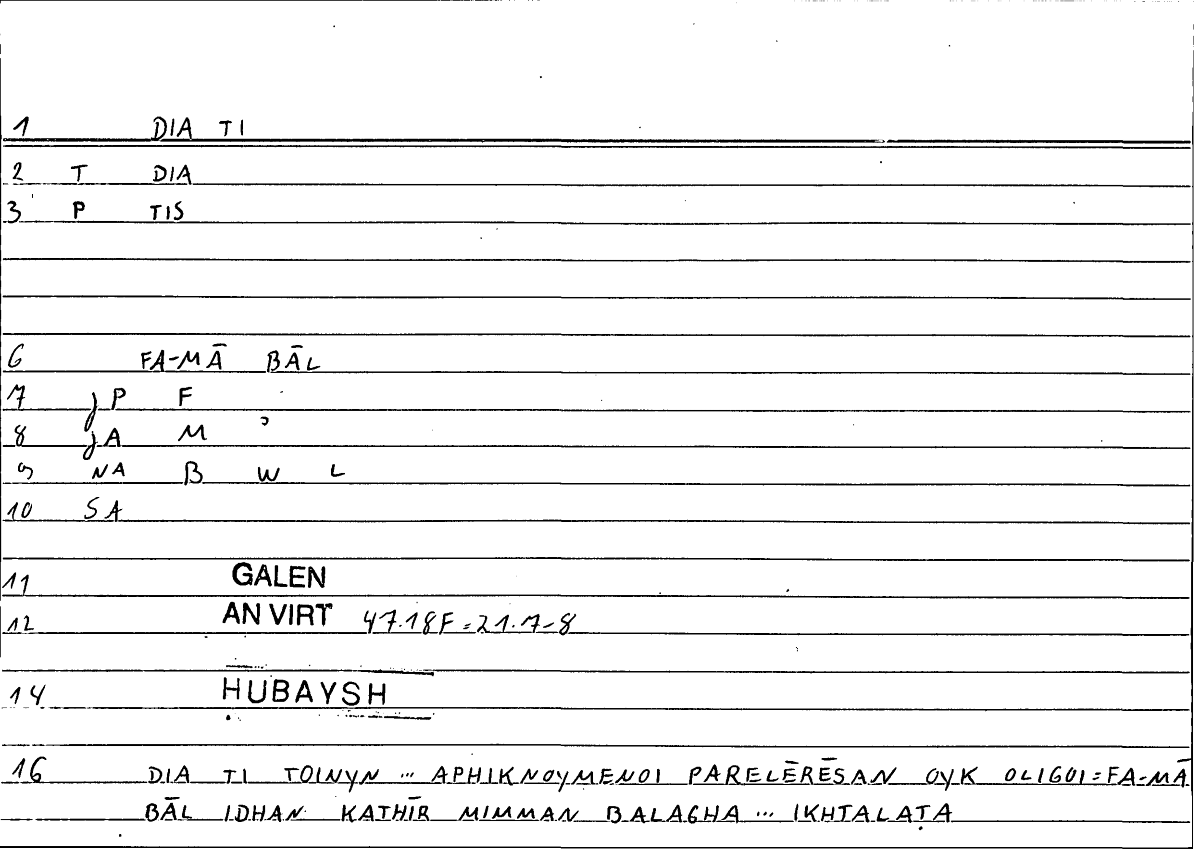 1 DIA TI
2 T DIA
3 P TIS
6 FA-MĀ BĀL
7 jP F
8 jA M ʾ
9 NA B W L
10 SA
11 GALEN
12 AN VIRT 47.18F=21.7-8
14 HUBAYSH
16 DIA TI TOINYN ... APHIKNOYMENOI PARELĒRĒSAN OYK OLIGOI=FA-MĀ
BĀL IDHAN KATHĪR MIMMAN BALAGHA ... IKHTALAṬA